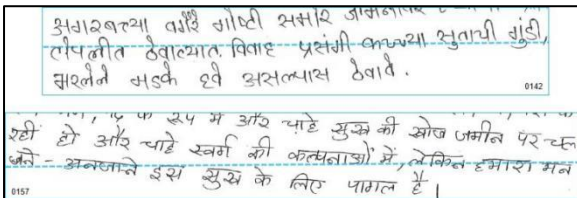 अगरबत्त्या वगैरे गोष्टी समोर
टोपलीत ठेवाव्यात. विवाह प्रसंगी कच्च्या सुताची गुंडी,
भरलेले मडके हवे असल्यास ठेवावे.
0142
के रूप में और चाहे सुख की खोज जमीन पर चल
रही हो और चाहे स्वर्ग की कल्पनाओं में, लेकिन हमारा मन
जाने - अनजाने इस सुख के लिए पागल है।
0157